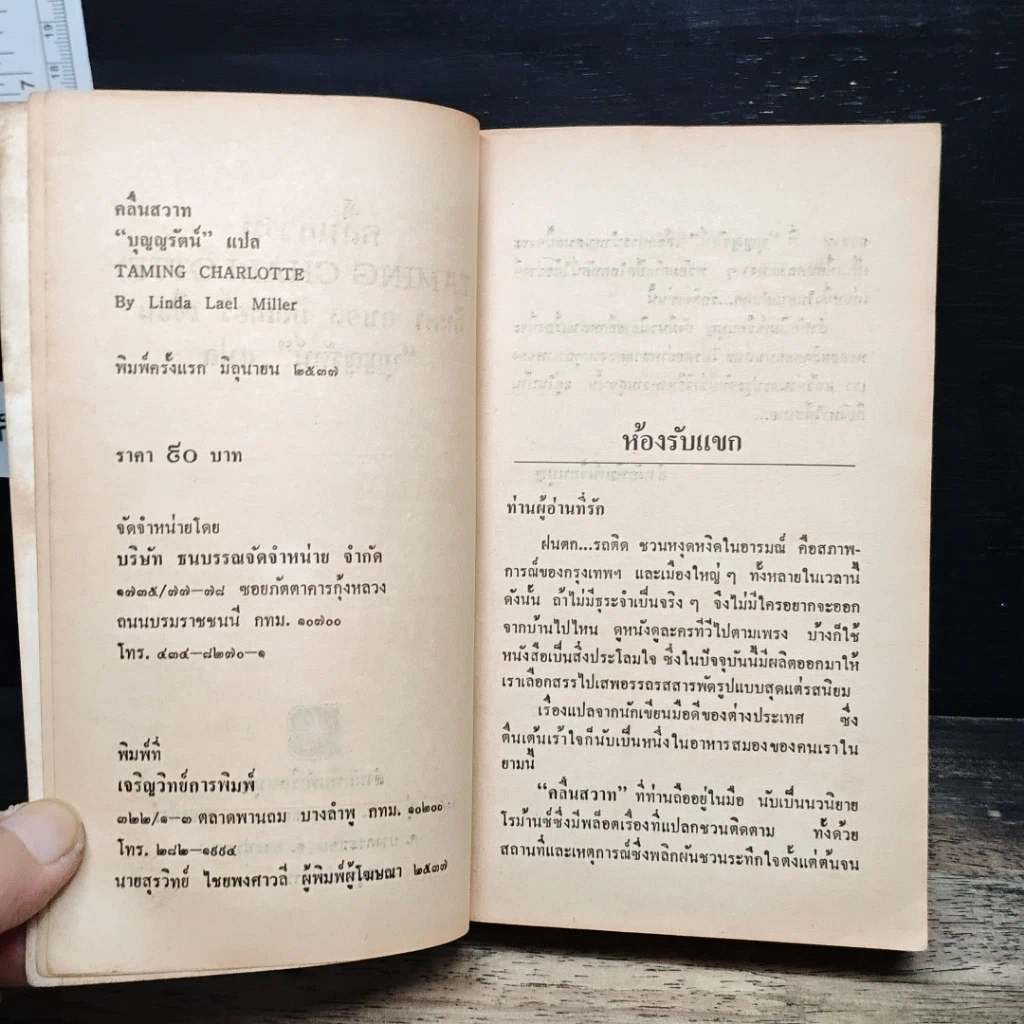 คลื่นสวาท
“บุญญรัตน์” แปล
TAMING CHARLOTTE
By Linda Lael Miller
พิมพ์ครั้งแรก มิถุนายน ๒๕๓๗
ราคา ๕๐ บาท
จัดจำหน่ายโดย
บริษัท ธนบรรณจัดจำหน่าย จำกัด
๑๗๓๕/๗๗–๗๘ ซอยภัตตาคารกุ้งหลวง
ถนนบรมราชชนนี กทม. ๑๐๗๐๐
โทร. ๔๓๔–๘๒๗๐–๑
พิมพ์ที่
เจริญวิทย์การพิมพ์
๓๒๒/๑–๓ ตลาดพานถม บางลำพู กทม. ๑๐๒๐๐
โทร. ๒๘๒–๑๙๙๔
นายสุรวิทย์ ไชยพงศาวลี ผู้พิมพ์ผู้โฆษณา ๒๕๓๗
ห้องรับแขก
ท่านผู้อ่านที่รัก
ฝนตก...รถติด ชวนหงุดหงิดในอารมณ์ คือสภาพ-
การณ์ของกรุงเทพฯ และเมืองใหญ่ ๆ ทั้งหลายในเวลานี้
ดังนั้น ถ้าไม่มีธุระจำเป็นจริง ๆ จึงไม่มีใครอยากจะออก
จากบ้านไปไหน ดูหนังดูละครทีวีไปตามเพรง บ้างก็ใช้
หนังสือเป็นสิ่งประโลมใจ ซึ่งในปัจจุบันนี้มีผลิตออกมาให้
เราเลือกสรรไปเสพอรรถรสสารพัดรูปแบบสุดแต่รสนิยม
เรื่องแปลจากนักเขียนมือดีของต่างประเทศ ซึ่ง
ตื่นเต้นเร้าใจก็นับเป็นหนึ่งในอาหารสมองของคนเราใน
ยามนี้
“คลื่นสวาท” ที่ท่านถืออยู่ในมือ นับเป็นนวนิยาย
โรม้านซ์ซึ่งมีพล็อตเรื่องที่แปลกชวนติดตาม ทั้งด้วย
สถานที่และเหตุการณ์ซึ่งพลิกผันชวนระทึกใจตั้งแต่ต้นจน